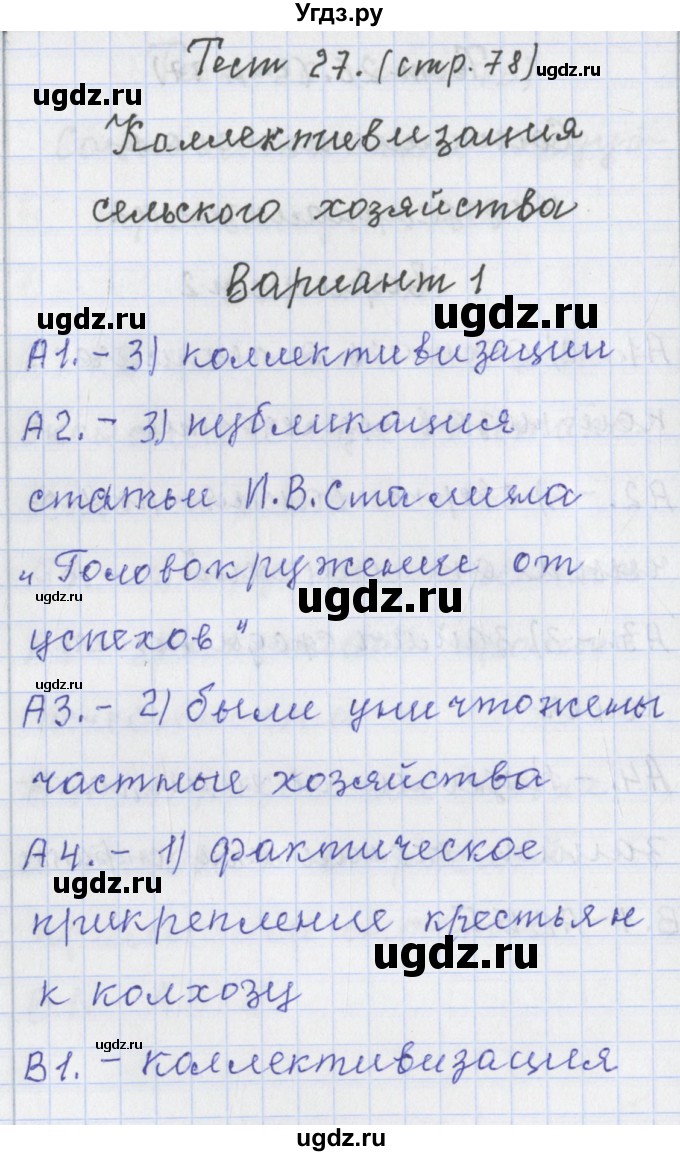 Угдз.ру
Тест 27. (стр. 78)
ugdz.ru
ugdz.ru
Коллективизация
сельского хозяйства
Вариант 1
ugdz.ru
ugdz.ru
А1. - 3) коллективизации
А2. - 3) публикация
статьи И.В.Сталина
„Головокружение от
ugdz.ru
ugdz.ru
успехов"
ugdz.ru
А3. - 2) были уничтожены
частные хозяйства
А4. - 1) фактическое
ugdz.ru
прикрепление крестьян
ugdz.ru
к колхозу
ugdz.ru
В1. - коллективизация
ugdz.ru